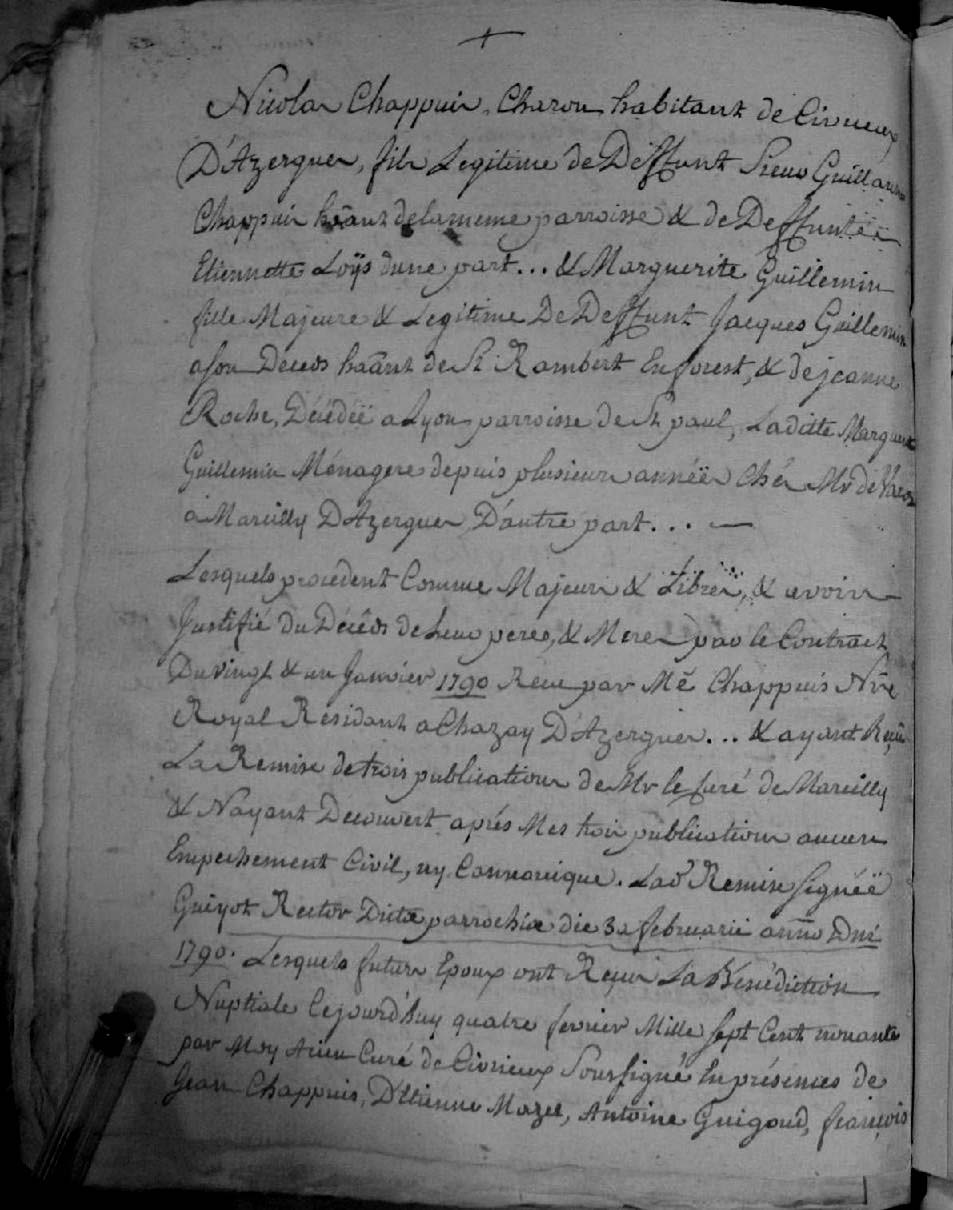 Nicolas Chappuis, Charon habitant de Civrieux
D'Azergues, fils Legitime de Deffunt Sieur Guillaume
Chappuis hãant de la meme parroisse & de Deffuntëe
Etiennette Loÿs d'une part... & Marguerite Guillemin
fille Majeure & Legitime De Deffunt Jacques Guillemin
a son Deceds hãant de St Rambert En forest, & de jeanne
Roche, Décédéë a Lyon parroisse de St paul, Laditte Marguerite
Guillemin Ménagere depuis plusieurs annéës Chés Mr de
à Marcilly D'Azergues D'autre part...
Lesquels procedent Comme Majeurs & Libres, & avoir
Justifié du Décèds de Leur peres, & Meres par le Contract
Du vingt & un Janvier 1790 Receu par Mẽ Chappuis Nre
Royal Residant a Chazay D'Azergues... & ayant Reçu
La Remise de trois publications de Mr le Curé de Marcilly
& N'ayant Decouvert aprés Mes trois publications aucun
Empechement Civil, ny Cannonique. Lad Remise signéë
Guiyot Rector Dictæ parrochiæ die 3a februarii anno Dni
1790. Lesquels futurs Epoux ont Reçus La Bénédiction
Nuptiale Cejourd'huy quatre fevrier Mille sept Cent nonante
par Moy Curé de Civrieux Soussigné En présences de
Jean Chappuis, D'Etienne Mazel, Antoine Guigoud, françois